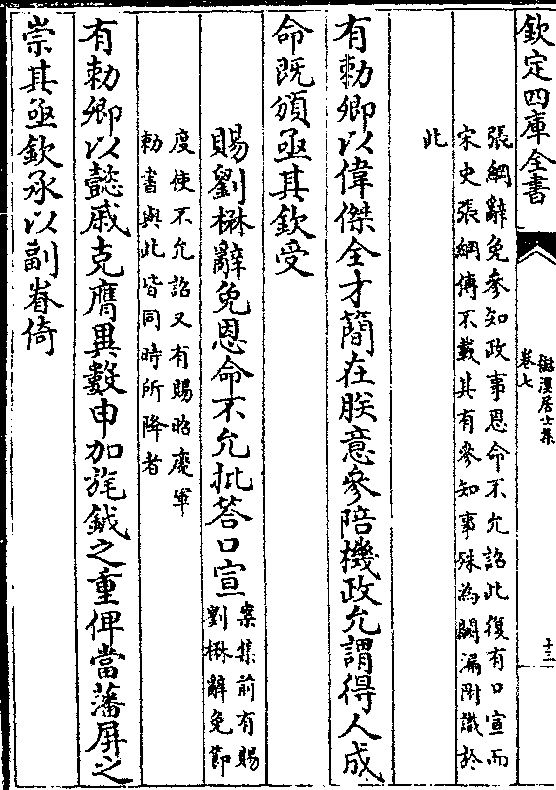 欽定四庫全書
卷七
澹溪居士集
十三
張綱辭免參知政事恩命不允詔此復有口宣而
宋史張綱傳不載其有參知事殊為闕漏附識於
此
有勅卿以偉傑全才簡在朕意參陪機政允謂得人成
命既頒亟其欽受
賜劉楙辭免恩命不允批荅口宣案集前有賜
劉楙辭免節
度使不允詔又有賜昭慶軍
勅書與此皆同時所降者
有勅卿以懿戚克膺異數申加旄鉞之重俾當藩屏之
崇其亟欽承以副眷倚